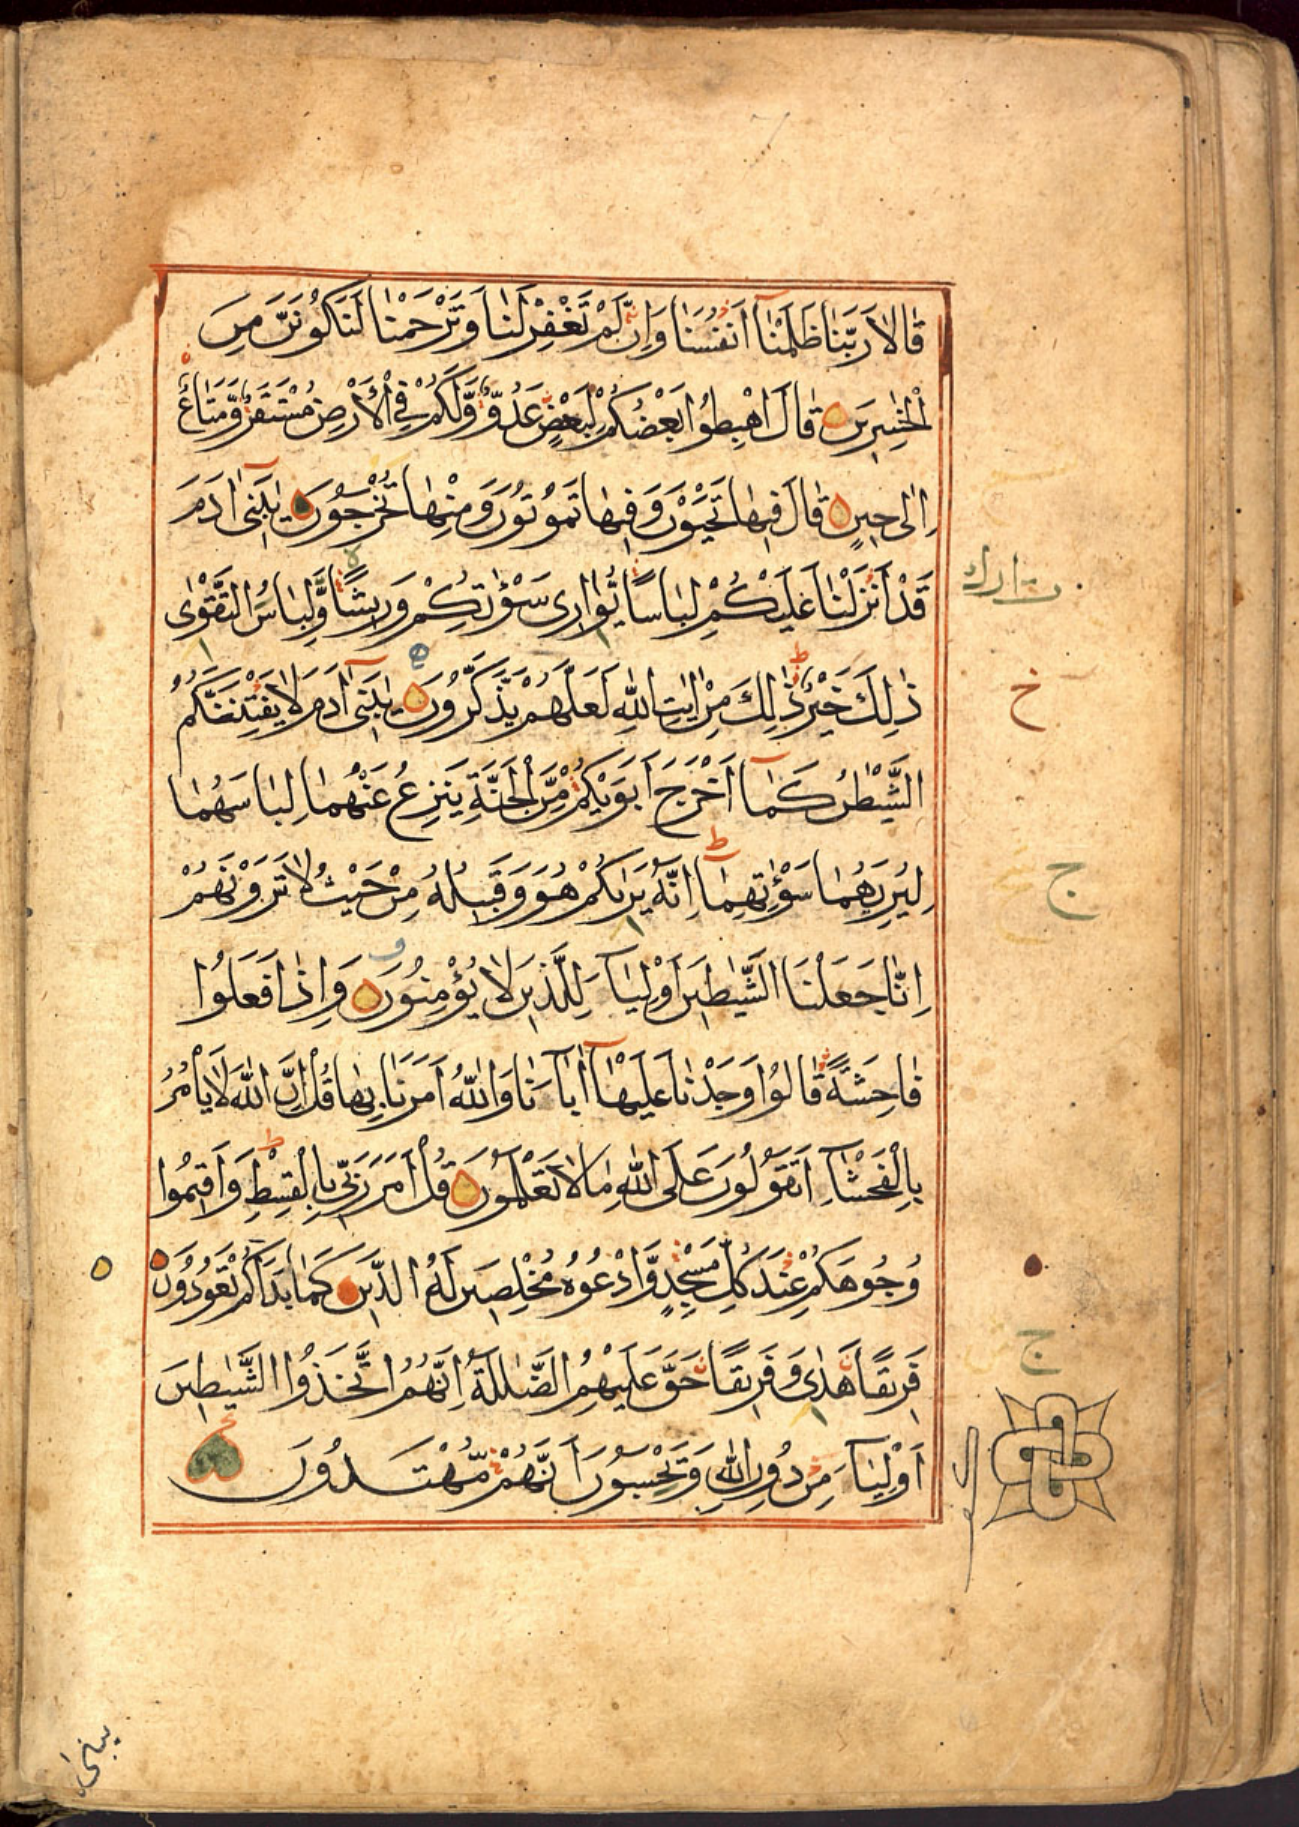 قَالَا رَبَّنَا ظَلَمْنَا أَنْفُسَنَا وَاِنْ لَمْ تَغْفِرْ لَنَا وَتَرْحَمْنَا لَنَكُونَنَّ مِنَ
الْخٰسِرِينَ قَالَ اهْبِطُوا بَعْضُكُمْ لِبَعْضٍ عَدُوٌّ وَّلَكُمْ فِي الْأَرْضِ مُسْتَقَرٌّ وَّمَتَاعٌ
اِلٰى حِينٍ قَالَ فِيهَا تَحْيَوْنَ وَفِيهَا تَمُوتُونَ وَمِنْهَا تُخْرَجُونَ يٰبَنِىٓ اٰدَمَ
قَدْ أَنْزَلْنَا عَلَيْكُمْ لِبَاسًا يُّوَارِى سَوْءٰتِكُمْ وَرِيشًا وَّلِبَاسُ التَّقْوٰى
ذٰلِكَ خَيْرٌ ذٰلِكَ مِنْ اٰيٰتِ اللّٰهِ لَعَلَّهُمْ يَذَّكَّرُونَ يٰبَنِىٓ اٰدَمَ لَا يَفْتِنَنَّكُمُ
الشَّيْطٰنُ كَمَآ اَخْرَجَ اَبَوَيْكُمْ مِّنَ الْجَنَّةِ يَنْزِعُ عَنْهُمَا لِبَاسَهُمَا
لِيُرِيَهُمَا سَوْءٰتِهِمَآ اِنَّهُ يَرٰىكُمْ هُوَ وَقَبِيلُهُ مِنْ حَيْثُ لَا تَرَوْنَهُمْ
اِنَّا جَعَلْنَا الشَّيٰطِينَ اَوْلِيَآءَ لِلَّذِينَ لَا يُؤْمِنُونَ وَاِذَا فَعَلُوا
فَاحِشَةً قَالُوا وَجَدْنَا عَلَيْهَآ اٰبَآءَنَا وَاللّٰهُ اَمَرَنَا بِهَا قُلْ اِنَّ اللّٰهَ لَا يَأْمُرُ
بِالْفَحْشَآءِ اَتَقُولُونَ عَلَى اللّٰهِ مَا لَا تَعْلَمُونَ قُلْ اَمَرَ رَبِّى بِالْقِسْطِ وَاَقِيمُوا
وُجُوهَكُمْ عِنْدَ كُلِّ مَسْجِدٍ وَّادْعُوهُ مُخْلِصِينَ لَهُ الدِّينَ كَمَا بَدَاَكُمْ تَعُودُونَ
فَرِيقًا هَدٰى وَفَرِيقًا حَقَّ عَلَيْهِمُ الضَّلٰلَةُ اِنَّهُمُ اتَّخَذُوا الشَّيٰطِينَ
اَوْلِيَآءَ مِنْ دُونِ اللّٰهِ وَيَحْسَبُونَ اَنَّهُمْ مُّهْتَدُونَ
خ
ج
ج
يبنى